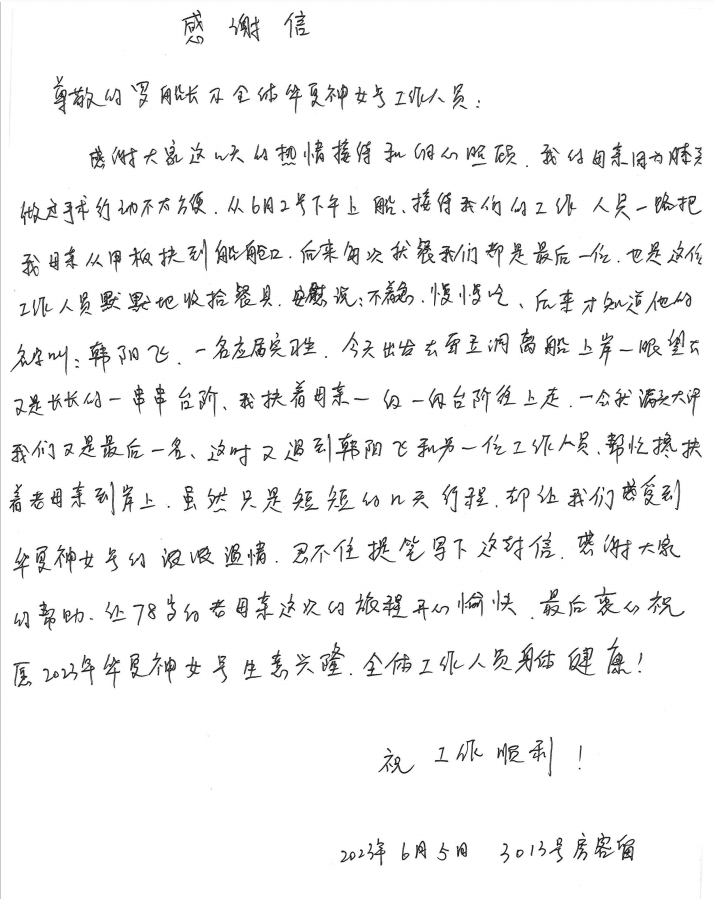 感谢信
尊敬的罗船长及全体华夏神女号工作人员：
感谢大家这几天的热情接待和细心照顾，我的母亲因为膝关
做过手术行动不太方便，从6月2号下午上船、接待我们的工作人员一路把
我母亲从甲板扶到船舱口，后来每次就餐我们都是最后一位，也是这位
工作人员默默地收拾餐具，安慰说：不着急，慢慢吃、后来才知道他的
名字叫：韩阳飞，一名应届实习生，今天出发去 离船上岸一眼望去
又是长长的一串串台阶、我扶着母亲一步一步台阶往上走，一会就满头大汗
我们又是最后一名、这时又遇到韩阳飞和另一位工作人员、帮忙搀扶
着老母亲到岸上，虽然只是短短的几天行程，却让我们感受到
华夏神女号的浓浓温情，忍不住提笔写下这封信，感谢大家
的帮助、让78岁的老母亲这次的旅程开心愉快，最后衷心祝
愿2023年华夏神女号生意兴隆，全体工作人员身体健康！
祝 工作顺利！
2023年6月5日 3013号房客留